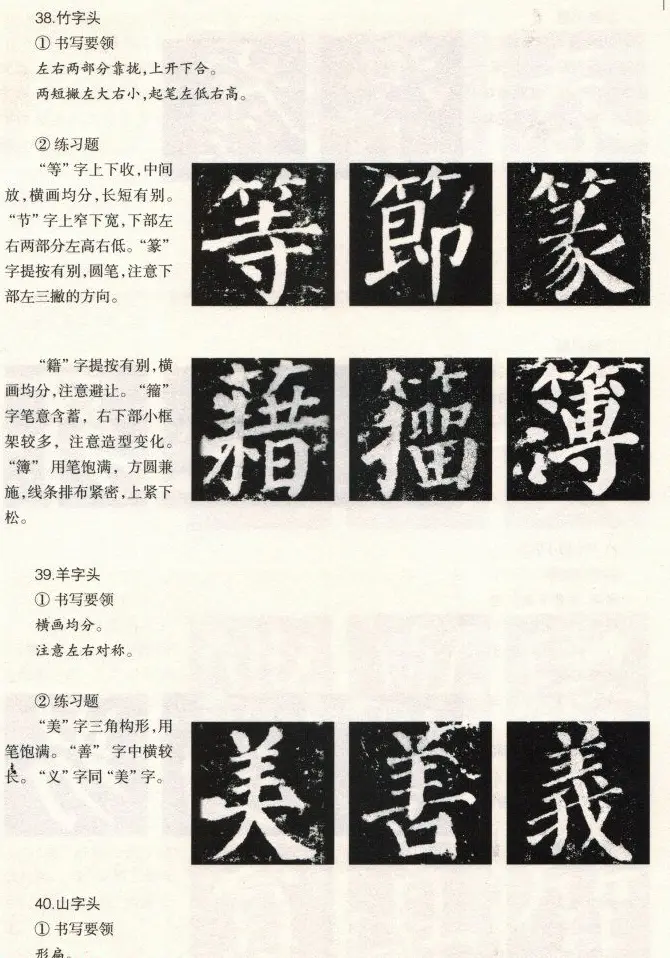 38.竹字头
①书写要领
左右两部分靠拢,上开下合。
两短撇左大右小,起笔左低右高。
②练习题
“等”字上下收,中间
放,横画均分,长短有别。
“节”字上窄下宽,下部左
右两部分左高右低。“篆”
字提按有别,圆笔,注意下
部左三撇的方向。
等 節 篆
“籍”字提按有别,横
画均分,注意避让。“籀”
字笔意含蓄，右下部小框
架较多，注意造型变化。
“簿”用笔饱满，方圆兼
施,线条排布紧密,上紧下
松。
籍 籀 簿
39.羊字头
①书写要领
横画均分。
注意左右对称。
②练习题
“美”字三角构形,用
笔饱满。“善”字中横较
长。“义”字同“美”字。
美 善 義
40.山字头
①书写要领
形扁。